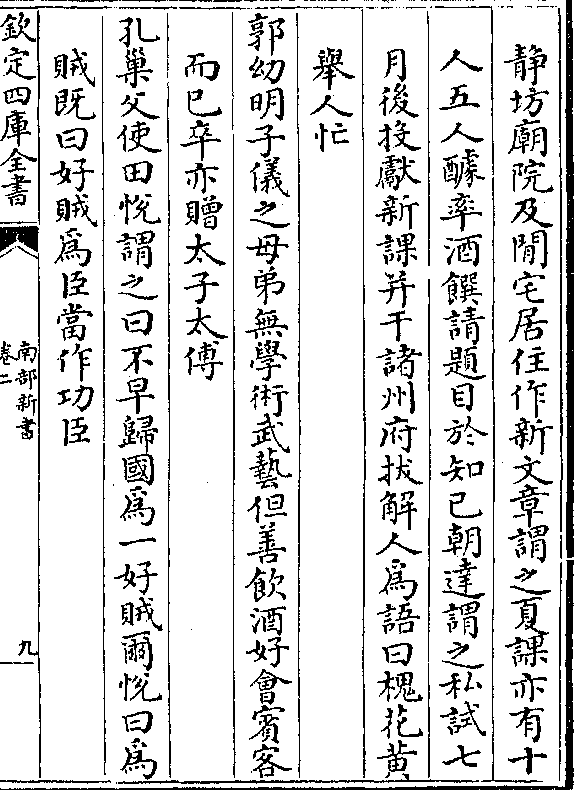 静坊廟院及閒宅居住作新文章謂之夏課亦有十
人五人醵率酒饌請題目於知已朝達謂之私試七
月後投獻新課并干諸州府拔解人爲語曰槐花黄
舉人忙
郭幼明子儀之母弟無學術武藝但善飲酒好會賓客
而已卒亦贈太子太傅
孔巢父使田悅謂之曰不早歸國爲一好賊爾悅曰爲
賊既曰好賊爲臣當作功臣
欽定四庫全書
南部新書
卷二
九